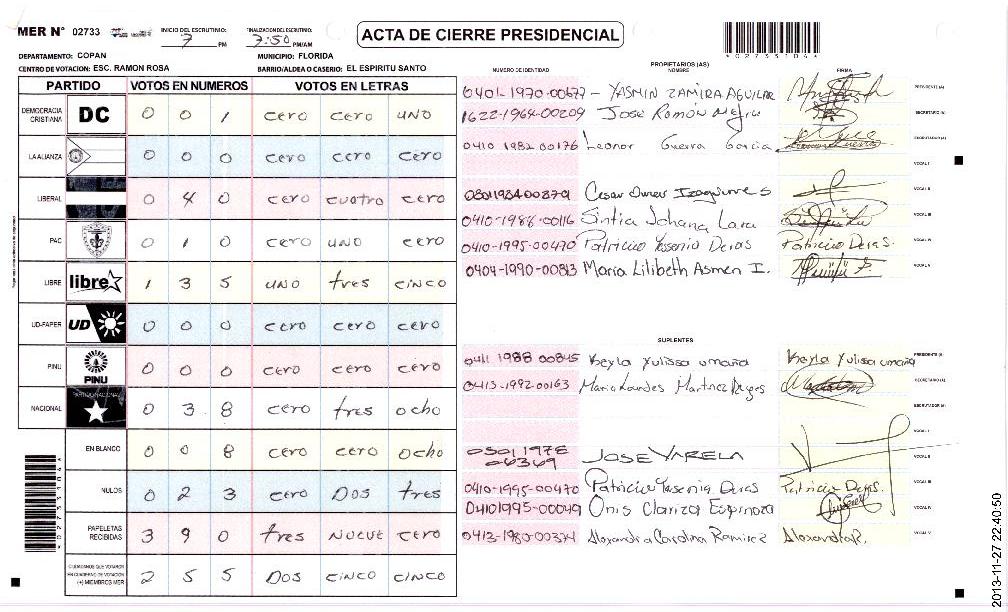 MER N° 02733 INICIO DEL ESCRUTINIO: 7 PM FINALIZACION ESCRUTINIO: 7:50 PM/AM
ACTA DE CIERRE PRESIDENCIAL
DEPARTAMENTO: COPAN MUNICIPIO: FLORIDA
CENTRO DE VOTACION: ESC. RAMON ROSA BARRIO/ALDEA O CASERIO: EL ESPIRITU SANTO
PARTIDO VOTOS EN NUMEROS VOTOS EN LETRAS
DEMOCRACIA CRISTIANA DC 0 0 1 cero cero uno
LA ALIANZA 0 0 0 cero cero cero
LIBERAL 0 4 0 cero cuatro cero
PAC 0 1 0 cero uno cero
LIBRE libre 1 3 5 uno tres cinco
UD-FAPER UD 0 0 0 cero cero cero
PINU PINU 0 0 0 cero cero cero
NACIONAL 0 3 8 cero tres ocho
EN BLANCO 0 0 8 cero cero ocho
NULOS 0 2 3 cero Dos tres
PAPELETAS RECIBIDAS 3 9 0 tres nueve cero
CIUDADANOS QUE VOTARON EN CUADERNO DE VOTACION (+) MIEMBROS MER 2 5 5 Dos cinco cinco
PROPIETARIOS (AS)
NUMERO DE IDENTIDAD NOMBRE FIRMA
0401-1970-00677 - YASMIN ZAMIRA AGUILAR PRESIDENTE (A)
1622-1964-00209 José Román Mejia SECRETARIO (A)
0410 1982 00176 Leonor Guerra Garcia ESCRUTADOR (A)
VOCAL I
0801198400879 Cesar Omar Izaguirre S VOCAL II
0410-1986-00116 Sintia Johana Lara VOCAL III
0410-1995-00470 Patricia Yasenia Deras Patricia Deras. VOCAL IV
0404-1990-00813 Maria Lilibeth Asmen I. VOCAL V
SUPLENTES
0411 1988 00845 Keyla Yulissa umaña Keyla Yulissa umaña PRESIDENTE (A)
0413-1992-00163 Maria Lourdes Martinez Reyes SECRETARIO (A)
ESCRUTADOR (A)
VOCAL I
0501 1978 06369 JOSE VARELA VOCAL II
0410-1995-00470 Patricia Yasenia Deras Patricia Deras. VOCAL III
04101995-00049 Onis Clariza Espinoza VOCAL IV
0413-1980-00374 Alexandra Carolina Ramirez Alexandra R. VOCAL V
2013-11-27 22:40:50